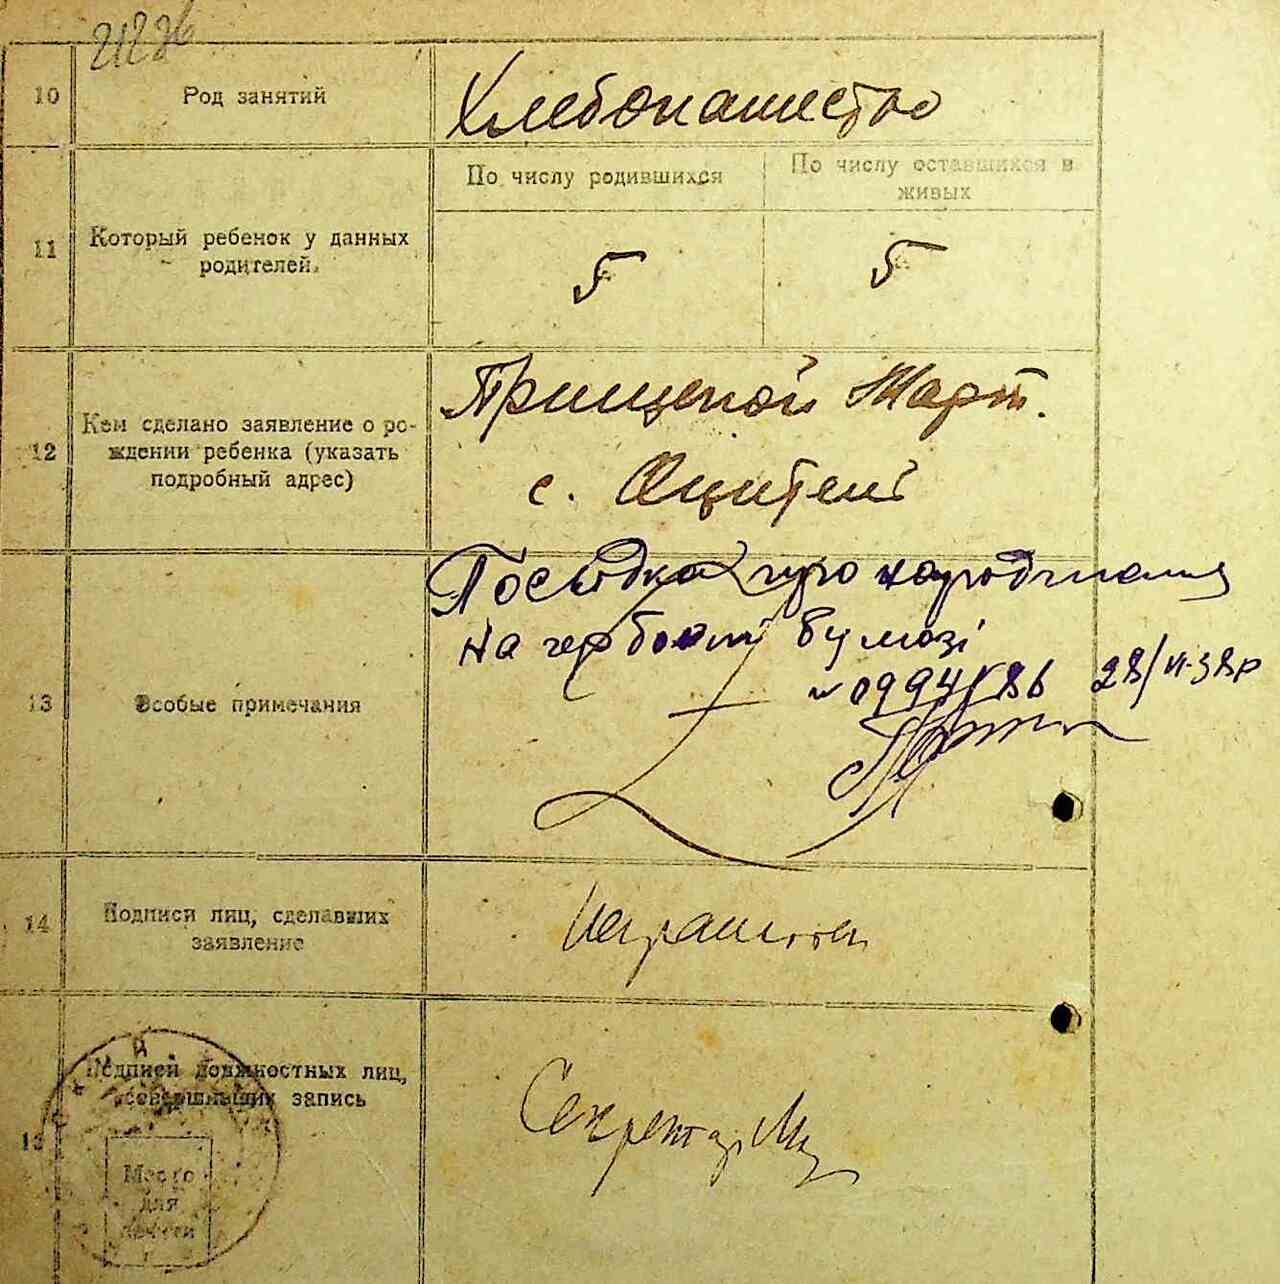 21226
10
Род занятий
Хлебопашество
11
Который ребенок у данных
родителей.
По числу родившихся
По числу оставшихся в
живых
5
5
12
Кем сделано заявление о ро-
ждении ребенка (указать
подробный адрес)
Прищепой Март.
с. Оцители
13
Особые примечания
про народження
на гербовій бумазі
28/VI-38р
14
Подписи лиц, сделавших
заявление
неграмотен
Подписей должностных лиц,
совершивших запись
Место
для
печати
Секретар